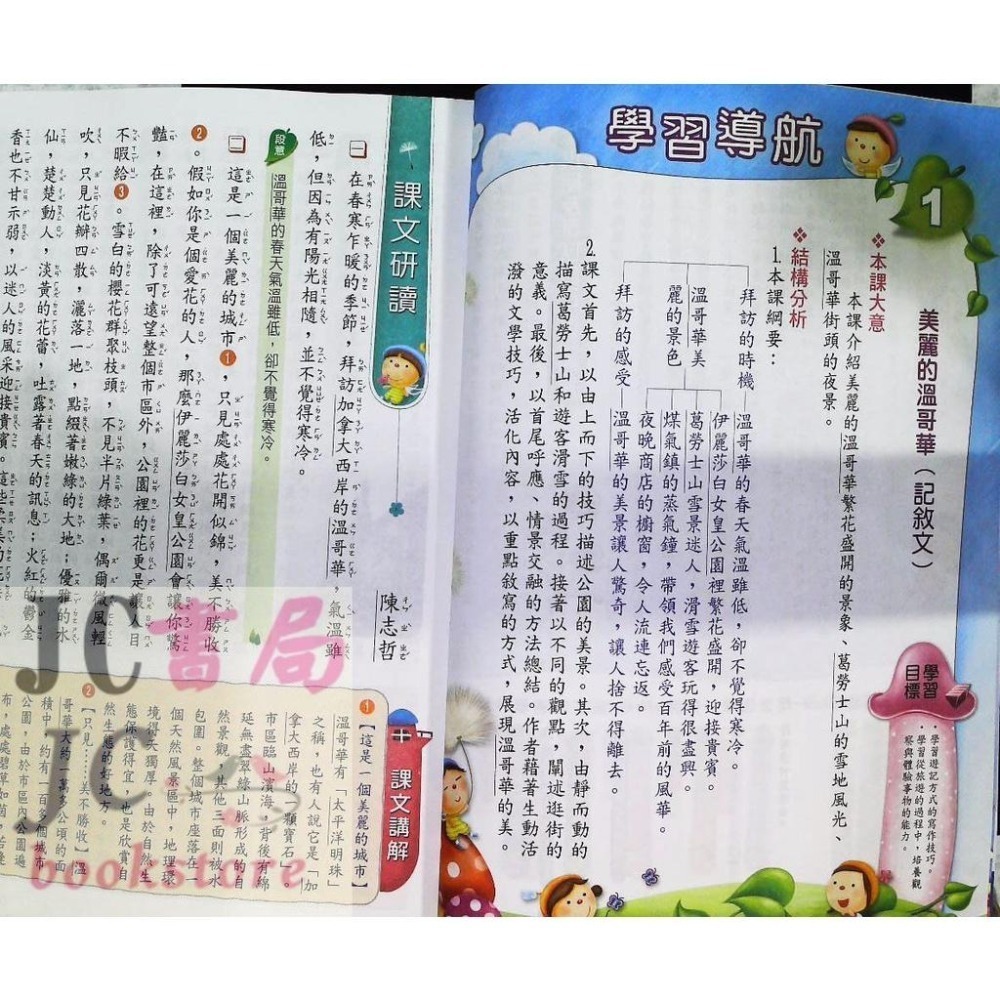 學習導航
1
美麗的溫哥華（記敘文）
❖本課大意
本課介紹美麗的溫哥華繁花盛開的景象、葛勞士山的雪地風光、
溫哥華街頭的夜景。
❖結構分析
1.本課綱要：
拜訪的時機
溫哥華的春天氣溫雖低，卻不覺得寒冷。
溫哥華美
麗的景色
伊麗莎白女皇公園裡繁花盛開，迎接貴賓。
葛勞士山雪景迷人，滑雪遊客玩得很盡興。
煤氣鎮的蒸氣鐘，帶領我們感受百年前的風華。
夜晚商店的櫥窗，令人流連忘返。
拜訪的感受
溫哥華的美景讓人驚奇，讓人捨不得離去。
2.課文首先，以由上而下的技巧描述公園的美景。其次，由靜而動的
描寫葛勞士山和遊客滑雪的過程。接者以不同的觀點，闡述逛街的
意義。最後，以首尾呼應、情景交融的方法總結。作者藉著生動活
潑的文學技巧，活化內容，以重點敘寫的方式，展現溫哥華的美。
學習
目標
學習遊記方式的寫作技巧。
學習從旅遊的過程中，培養觀
察與體驗事物的能力。
課文研讀
陳志哲
一 在春寒乍暖的季節，拜訪加拿大西岸的溫哥華，氣溫雖
低，但因為有陽光相隨，並不覺得寒冷。
段意
溫哥華的春天氣溫雖低，卻不覺得寒冷。
二 這是一個美麗的城市❶，只見處處花開似錦，美不勝收
❷。假如你是個愛花的人，那麼伊麗莎白女皇公園會讓你驚
豔，在這裡，除了可遠望整個市區外，公園裡的花更是讓人目
不暇給❸。雪白的櫻花群聚枝頭，不見半片綠葉，偶爾微風輕
吹，只見花瓣四散，灑落一地，點綴著嫩綠的大地；優雅的水
仙，楚楚動人，淡黃的花蕾，吐露著春天的訊息；火紅的鬱金
香也不甘示弱，以迷人的風采迎接貴賓。
課文講解
❶【這是一個美麗的城市】
溫哥華有「太平洋明珠」
之稱，也有人說它是「加
拿大西岸的一顆寶石」。
市區臨山濱海，背後有綿
延無盡翠綠山脈形成的自
然景觀，其他三面則被水
包圍。整個城市座落在一
個天然風景區中，地理環
境得天獨厚。由於自然生
能保護得宜，也是欣賞自
然生態的好地方。
❷【只見……美不勝收】溫
哥華大約一萬多公頃的面
積中，約有一百
個城市
公園，由於市區內公園遍
布，處處碧草如茵，
JC書局
JC
bookstore